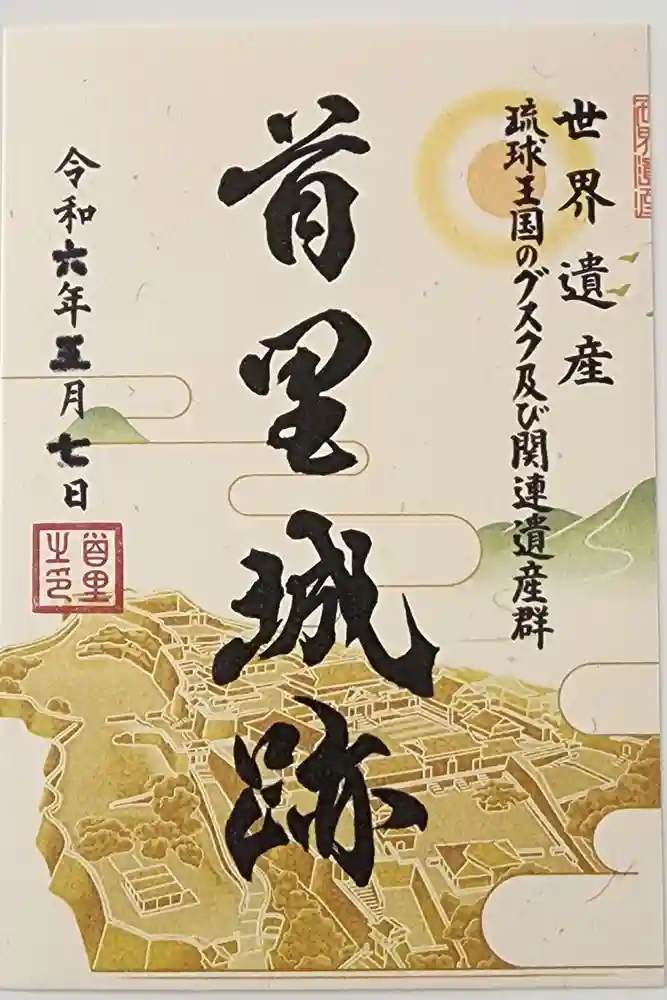 世界遺産
世界遺産
琉球王国のグスク及び関連遺産群
首里城跡
令和六年五月七日
首里
之印